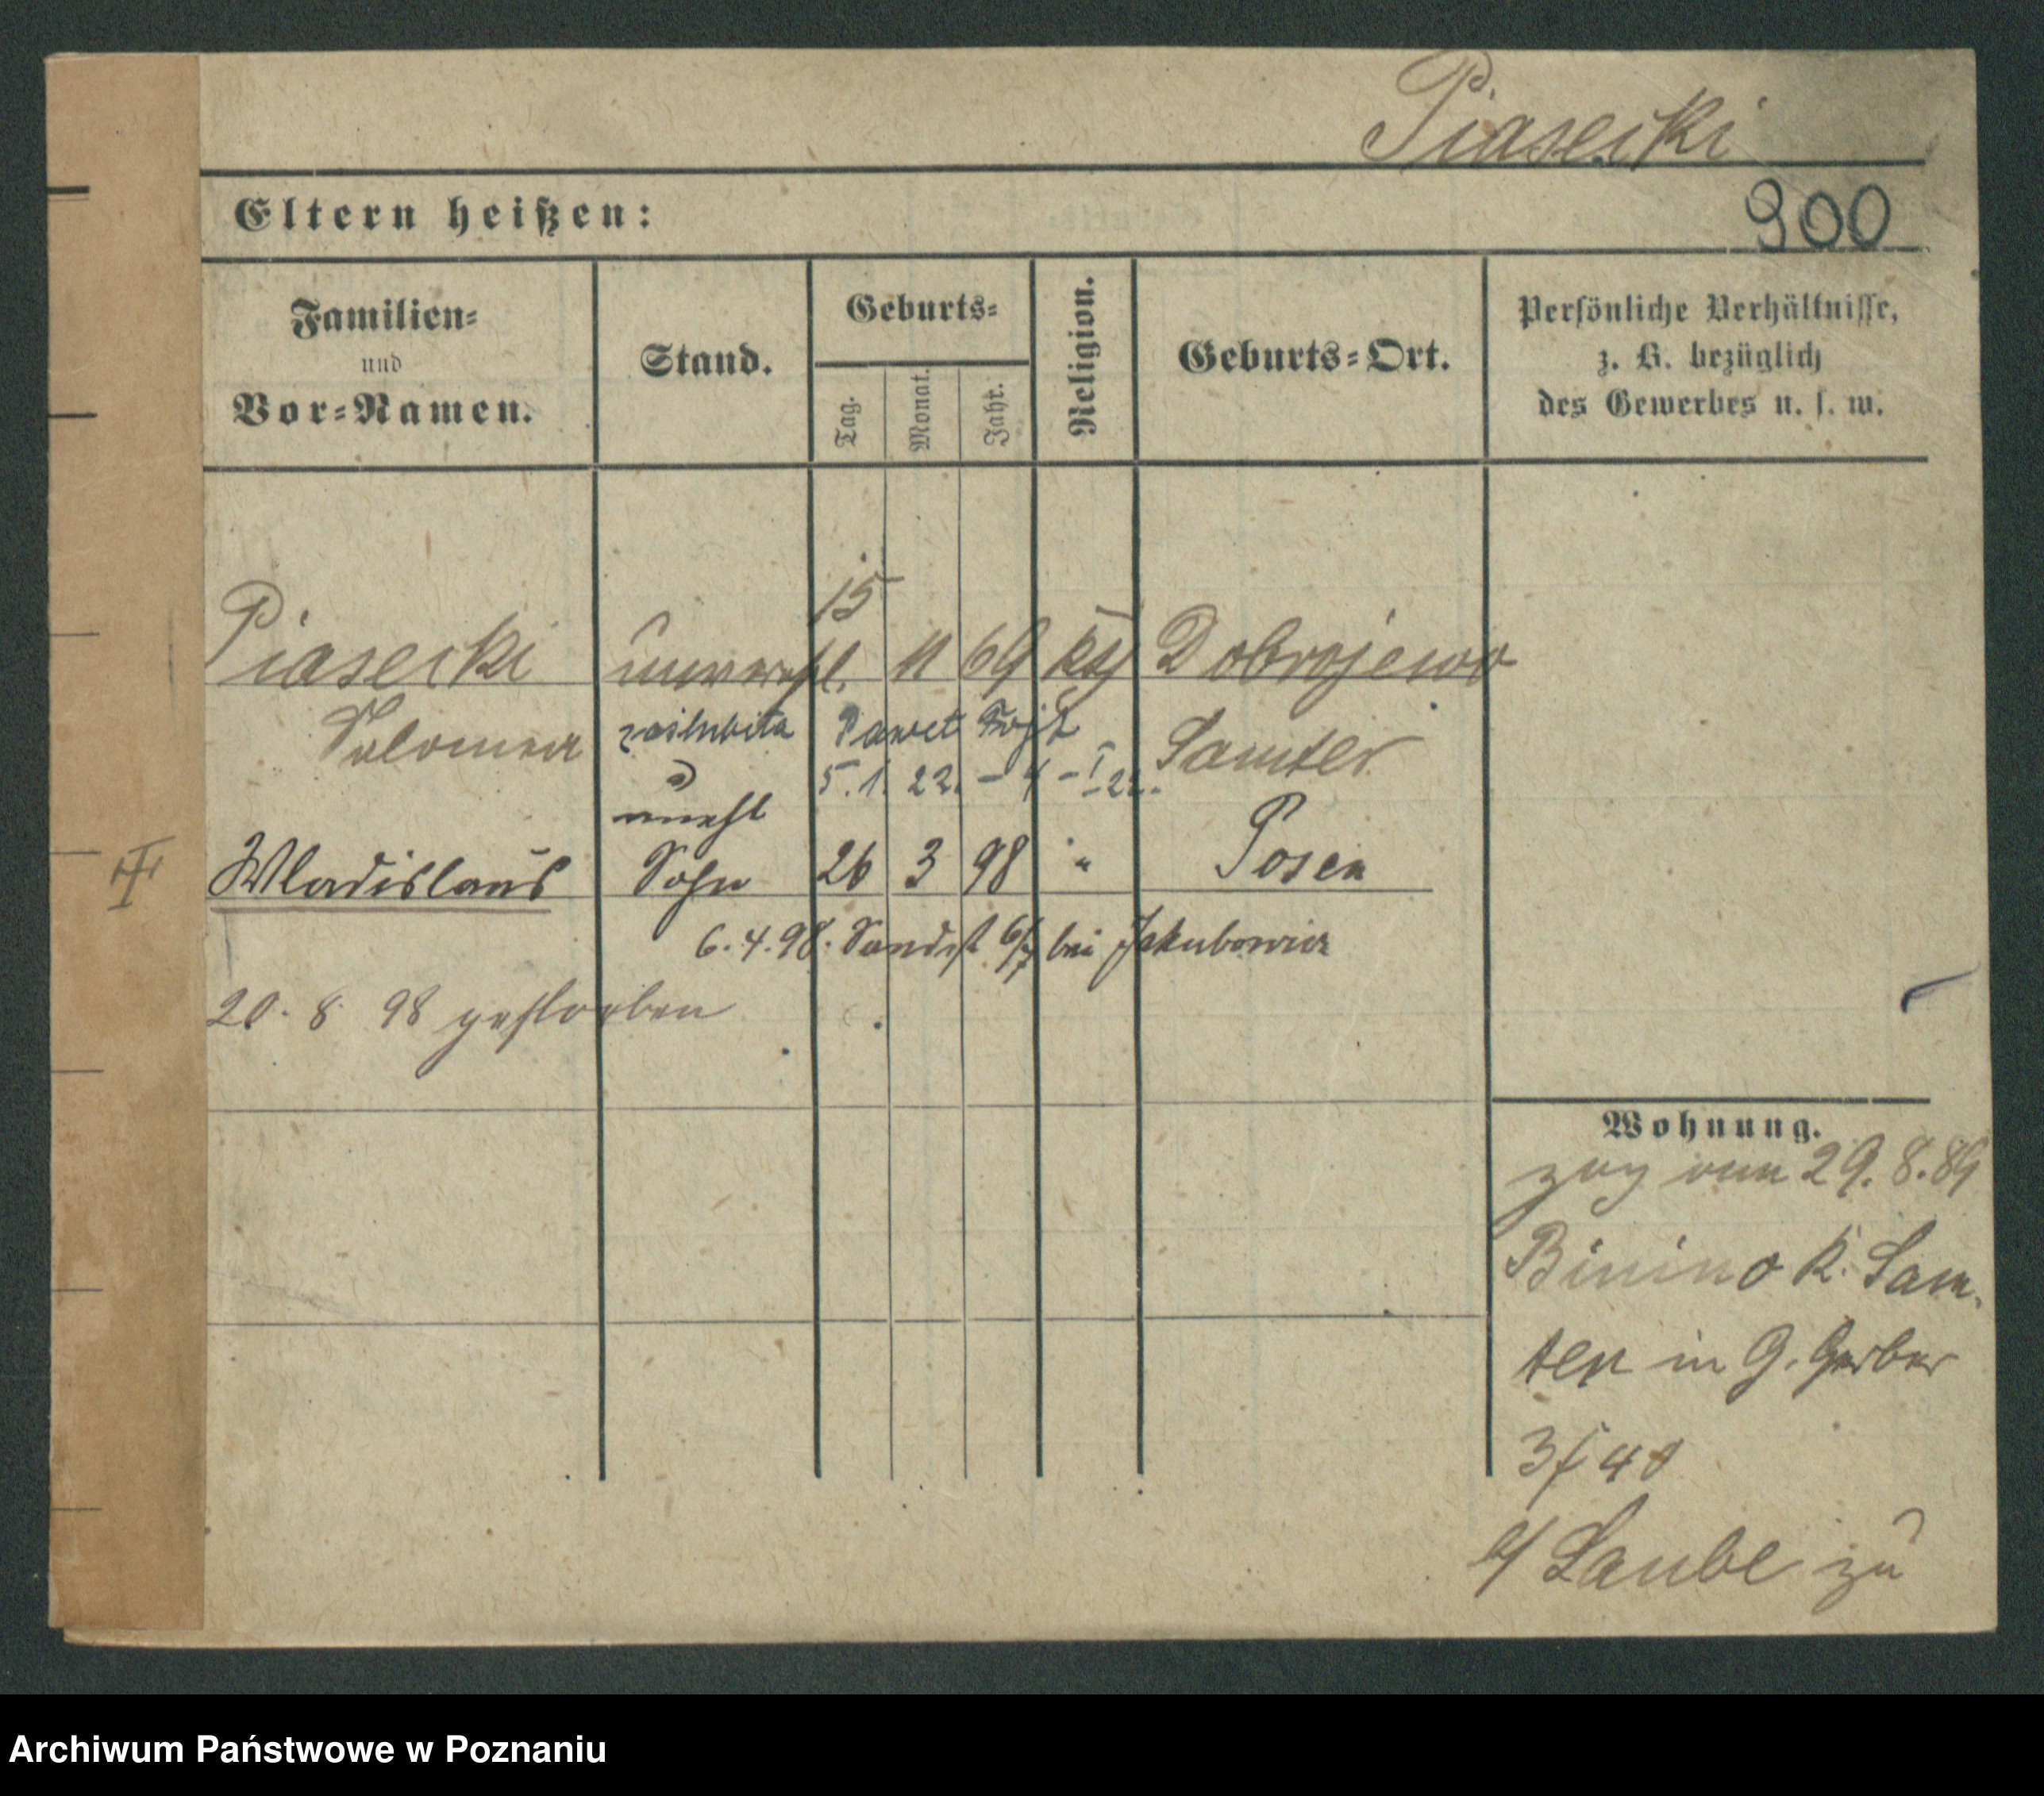 Piasecki
Eltern heißen:
900
Familien-
und
Vor-Namen.
Stand.
Geburts-
Tag.
Monat.
Jahr.
Religion.
Geburts-Ort.
Persönliche Verhältnisse,
z. B. bezüglich
des Gewerbes u. s. w.
15
Piasecki unverehl. 11 69 kth Dobrojewo
Salomea zaślubiła Paweł Samter
5.1.22. – 4 – I – 22.
unehl
Wladislaus Sohn 26 3 98 " Posen
6.4.98. Sandst 6/7 bei Jakubowicz
20. 8 98 gestorben
Wohnung.
zog von 29.8.89
Binino K. Sam-
ter in G. Gerber
40
Laube zu
Archiwum Państwowe w Poznaniu